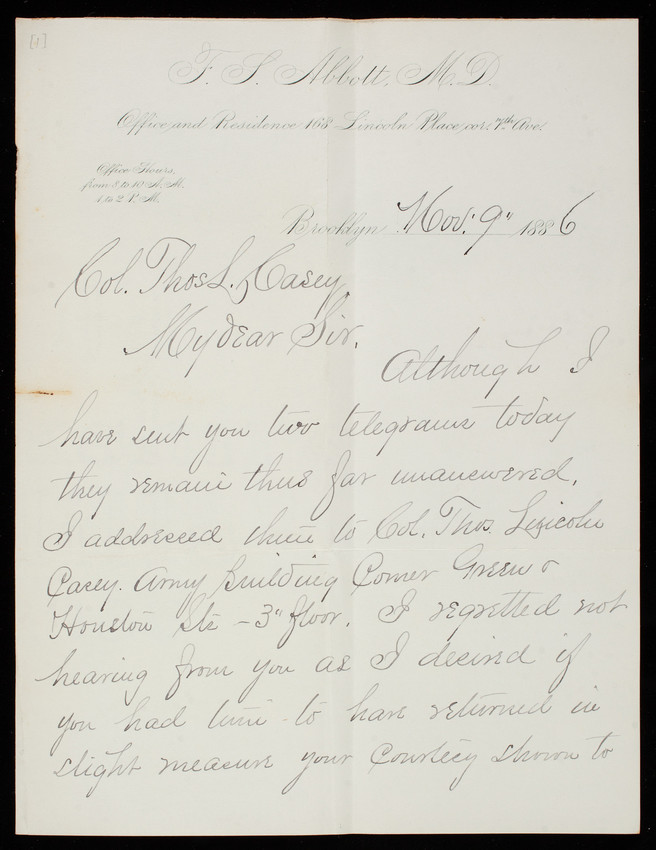 [1]
F. S. Abbott, M. D.
Office and Residence 168 Lincoln Place cor. 7th Ave.
Office Hours,
from 8 to 10 A. M.
1 to 2 P. M.
Brooklyn Nov. 9" 1886
Col. Thos L. Casey,
My dear Sir.
Although I
have sent you two telegrams today
they remain thus far unanswered.
I addressed them to Col. Thos. Lincoln
Casey. Army Building Corner Green &
Houston Sts - 3" floor. I regretted not
hearing from you as I desired if
you had time to have returned in
slight measure your Courtesy shown to